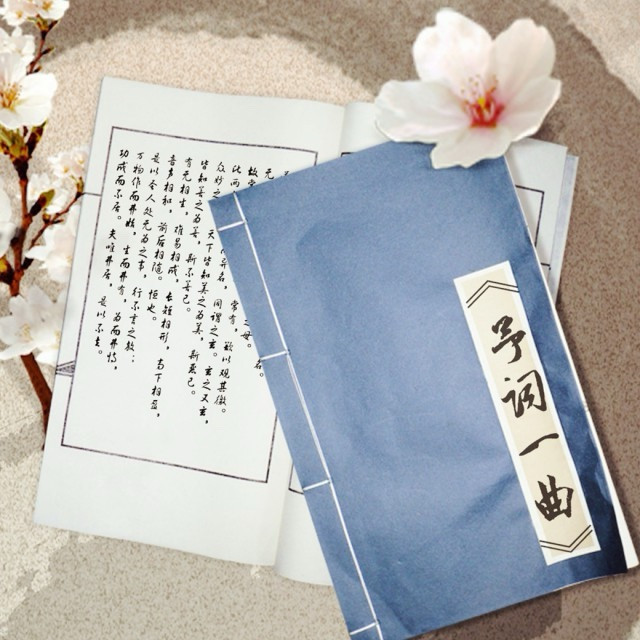 予词一曲
之母。
常有，欲以观其徼。
此两
名，同谓之玄。玄之又玄，
众妙之
天下皆知美之为美，斯恶已。
皆知善之为善，斯不善已。
有无相生，难易相成，长短相形，高下相盈，
音声相和，前后相随。恒也。
是以圣人处无为之事，行不言之教；
万物作而弗始，生而弗有，为而弗恃，
功成而不居。夫唯弗居，是以不去。